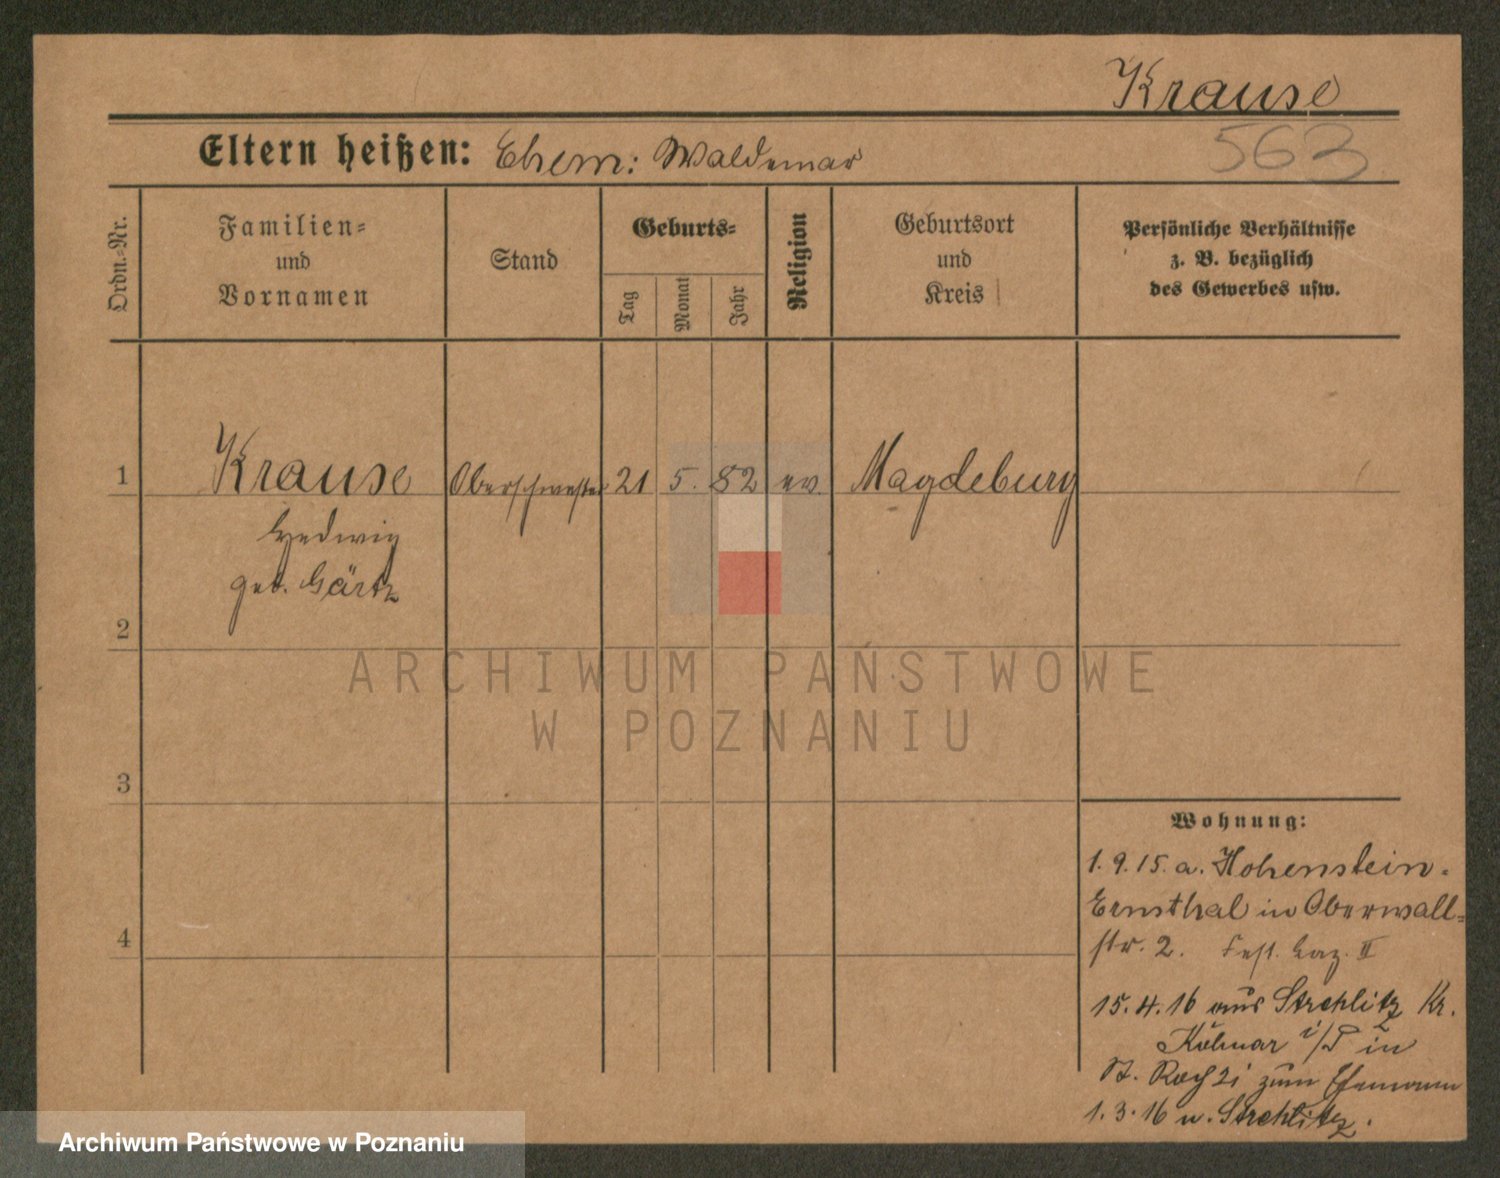 Krause
563
Eltern heißen: Ehem: Waldemar
Ordn.-Nr.
Familien-
und
Vornamen
Stand
Geburts-
Tag
Monat
Jahr
Religion
Geburtsort
und
Kreis
Persönliche Verhältnisse
z. B. bezüglich
des Gewerbes usw.
1 Krause Oberschwester 21 5. 82 ev. Magdeburg
Hedwig
geb. Gärtz
2
ARCHIWUM PAŃSTWOWE
W POZNANIU
3
Wohnung:
1.9.15. a. Hohenstein-
Ernsthal in Oberwall-
str. 2. Fest. Laz. II
4
15.4.16 aus Strehlitz Kr.
Kolmar i/P in
St. Roch 2i zum Ehemann
1.3.16 n. Strehlitz.
Archiwum Państwowe w Poznaniu